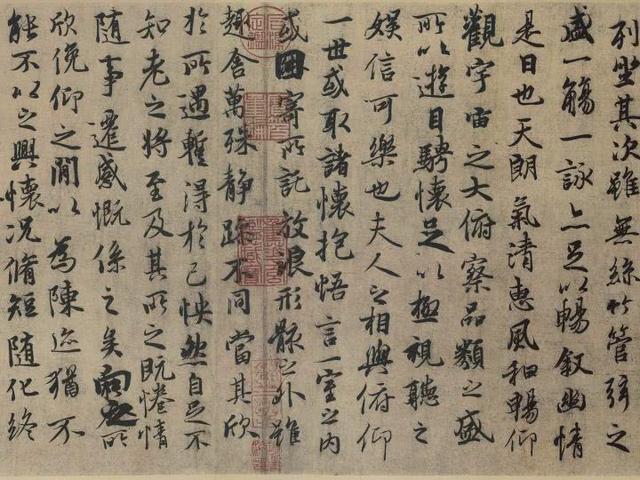 列坐其次雖無絲竹管弦之
盛一觴一詠亦足以暢敘幽情
是日也天朗氣清惠風和暢仰
觀宇宙之大俯察品類之盛
所以遊目騁懷足以極視聽之
娛信可樂也夫人之相與俯仰
一世或取諸懷抱悟言一室之內
或因寄所託放浪形骸之外雖
趣舍萬殊靜躁不同當其欣
於所遇暫得於己怏然自足不
知老之將至及其所之既惓情
隨事遷感慨係之矣向之所
欣俛仰之間以為陳迹猶不
能不以之興懷況脩短隨化終